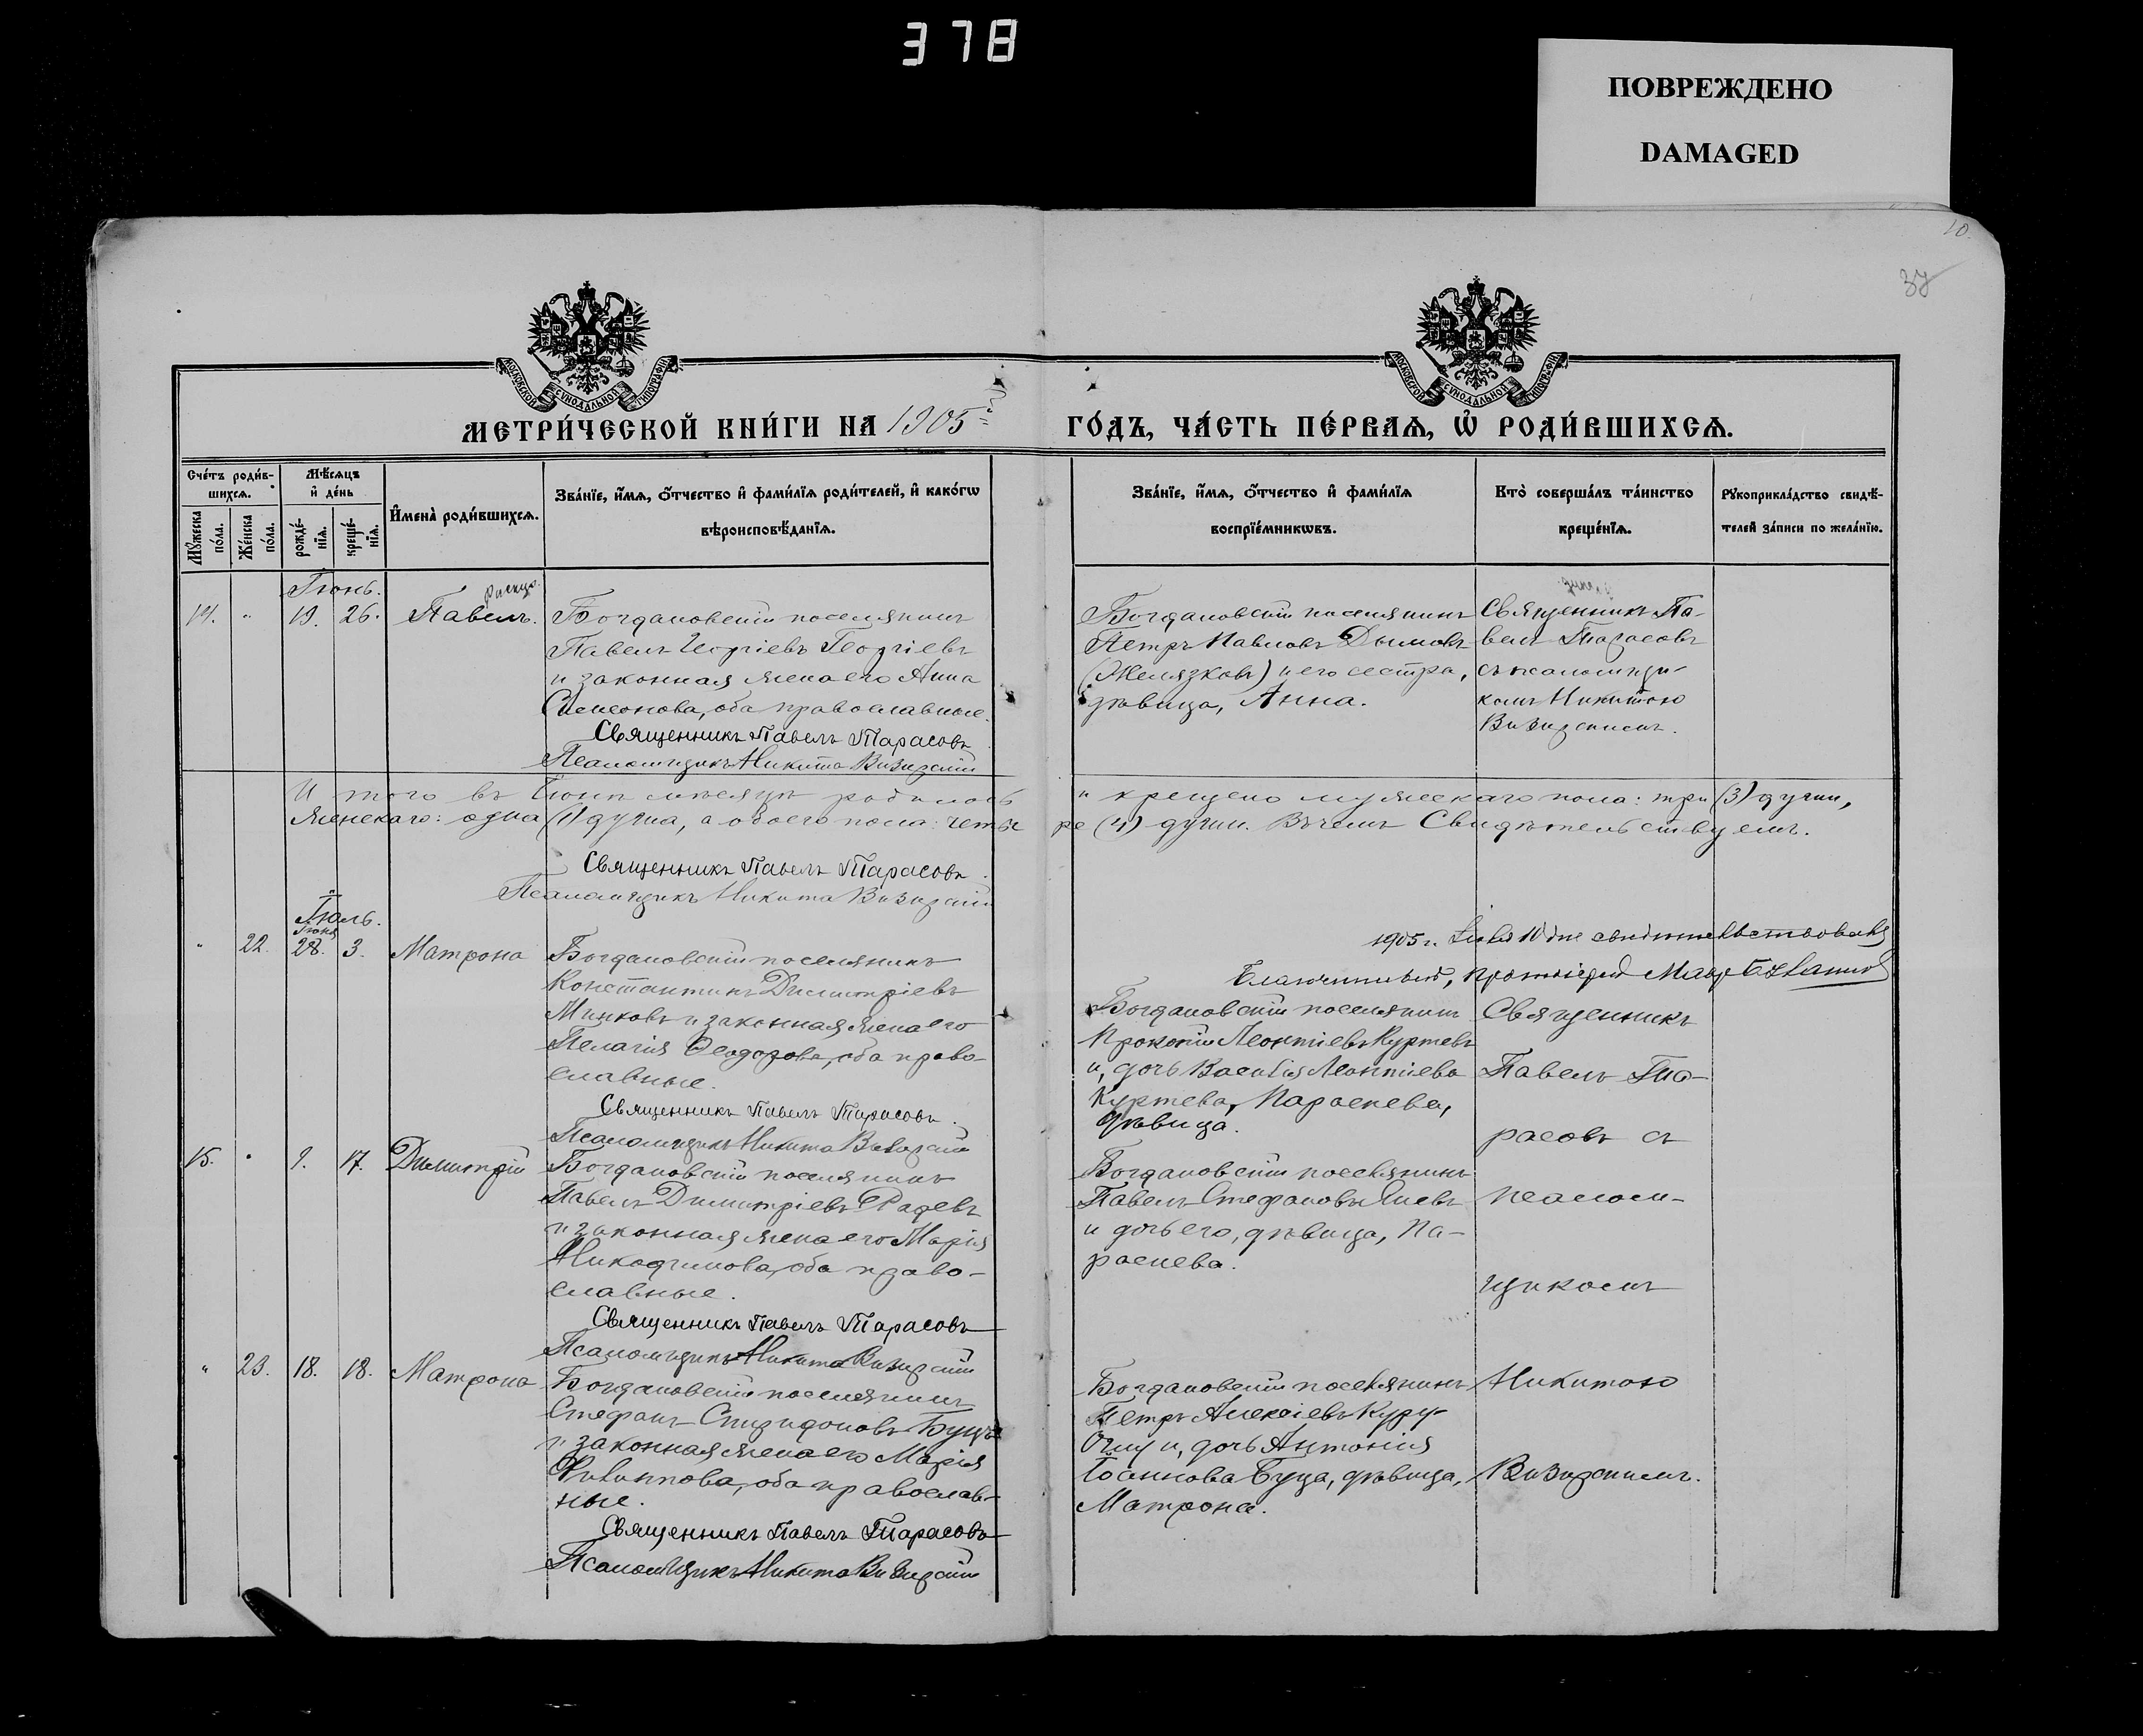 378
ПОВРЕЖДЕНО
DAMAGED
10.
37
МОСКОВСКОЙ СѴНОДАЛЬНОЙ ТИПОГРАФІИ
МОСКОВСКОЙ СѴНОДАЛЬНОЙ ТИПОГРАФІИ
МЕТРИ́ЧЕСКОЙ КНИ́ГИ НА 1905 ГО́ДЪ, ЧА́СТЬ ПЕ́РВАѦ, Ѡ҆ РОДИ́ВШИХСѦ.
Сче́тъ роди́в-
шихсѧ.
Мꙋ́жеска по́ла.
Же́нска по́ла.
Мѣ́сѧцъ
и҆ де́нь
рожде́-
нїѧ.
креще́-
нїѧ.
И҆мена̀ роди́вшихсѧ.
Зва́нїе, и҆́мѧ, ѻ҆́тчество и҆ фами́лїѧ роди́телей, и҆ како́гѡ
вѣроисповѣ́данїѧ.
Зва́нїе, и҆́мѧ, ѻ҆́тчество и҆ фами́лїѧ
воспрїе́мникѡвъ.
Кто̀ соверша́лъ та́инство
креще́нїѧ.
Рꙋкоприкла́дство свидѣ́-
телей за́писи по жела́нїю.
Іюнь.
14. " 19. 26. Павелъ.
Богдановскій поселянинъ
Павелъ Георгіевъ Георгіевъ
и законная жена его Анна
Симеонова, оба православные.
Священникъ Павелъ Тарасовъ
Псаломщикъ Никита Визирскій
Богдановскій поселянинъ
Петръ Павловъ Дымовъ
(Желязковъ) и его сестра,
дѣвица, Анна.
Священникъ Па-
велъ Тарасовъ
съ псаломщи-
комъ Никитою
Визирскимъ.
И того въ Іюнѣ мѣсяцѣ родилось и крещено мужескаго пола: три (3) души,
женскаго: одна (1) душа, а обоего пола: четы ре (4) души. Въ чемъ Свидѣтельствуемъ.
Священникъ Павелъ Тарасовъ.
Псаломщикъ Никита Визирскій
1905 г. Іюля 10 дня свидѣтельствовалъ
Благочинный, протоіерей
Іюль.
Іюня
" 22. 28. 3. Матрона
Богдановскій поселянинъ
Константинъ Димитріевъ
Минковъ и законная жена его
Пелагія Ѳеодорова, оба право-
славные.
Священникъ Павелъ Тарасовъ.
Псаломщикъ Никита Визирскій
Богдановскій поселянинъ
Прокопій Леонтіевъ Куртевъ
и, дочь Василія Леонтіева
Куртева, Параскева,
дѣвица.
Священникъ
Павелъ Та-
расовъ съ
псалом-
щикомъ
Никитою
Визирскимъ.
15. " 9. 17. Димитрій
Богдановскій поселянинъ
Павелъ Димитріевъ Радевъ
и законная жена его Марія
Никодимова, оба право-
славные.
Священникъ Павелъ Тарасовъ
Псаломщикъ Никита Визирскій
Богдановскій поселянинъ
Павелъ Стефановъ
и дочь его, дѣвица, Па-
раскева.
" 23. 18. 18. Матрона
Богдановскій поселянинъ
Стефанъ Спиридоновъ Буца
и законная жена его Марія
Филиппова, оба православ-
ные.
Священникъ Павелъ Тарасовъ
Псаломщикъ Никита Визирскій
Богдановскій поселянинъ
Петръ Алексіевъ Куру-
и, дочь Антонія
Іоаннова Буца, дѣвица,
Матрона.